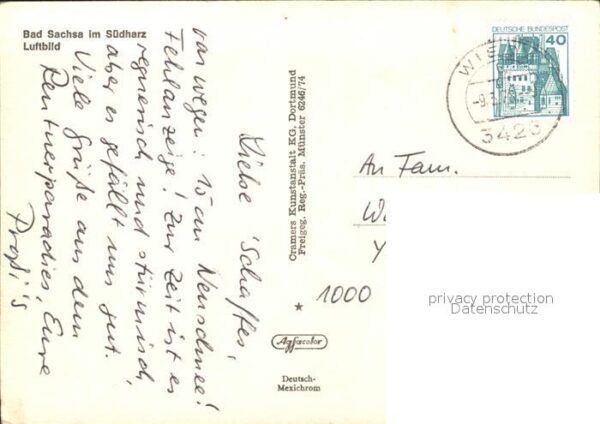 Bad Sachsa im Südharz
Luftbild
Liebe Schaffes,
von wegen: 15 cm Neuschnee!
Fehlanzeige! Zur Zeit ist es
regnerisch und stürmisch,
aber es gefällt uns gut.
Viele Grüße aus dem
Rentnerparadies, Eure
Cramers Kunstanstalt KG, Dortmund
Freigeg. Reg.-Präs. Münster 6246/74
Agfacolor
Deutsch-
Mexichrom
DEUTSCHE BUNDESPOST
40
An Fam.
1000
privacy protection
Datenschutz